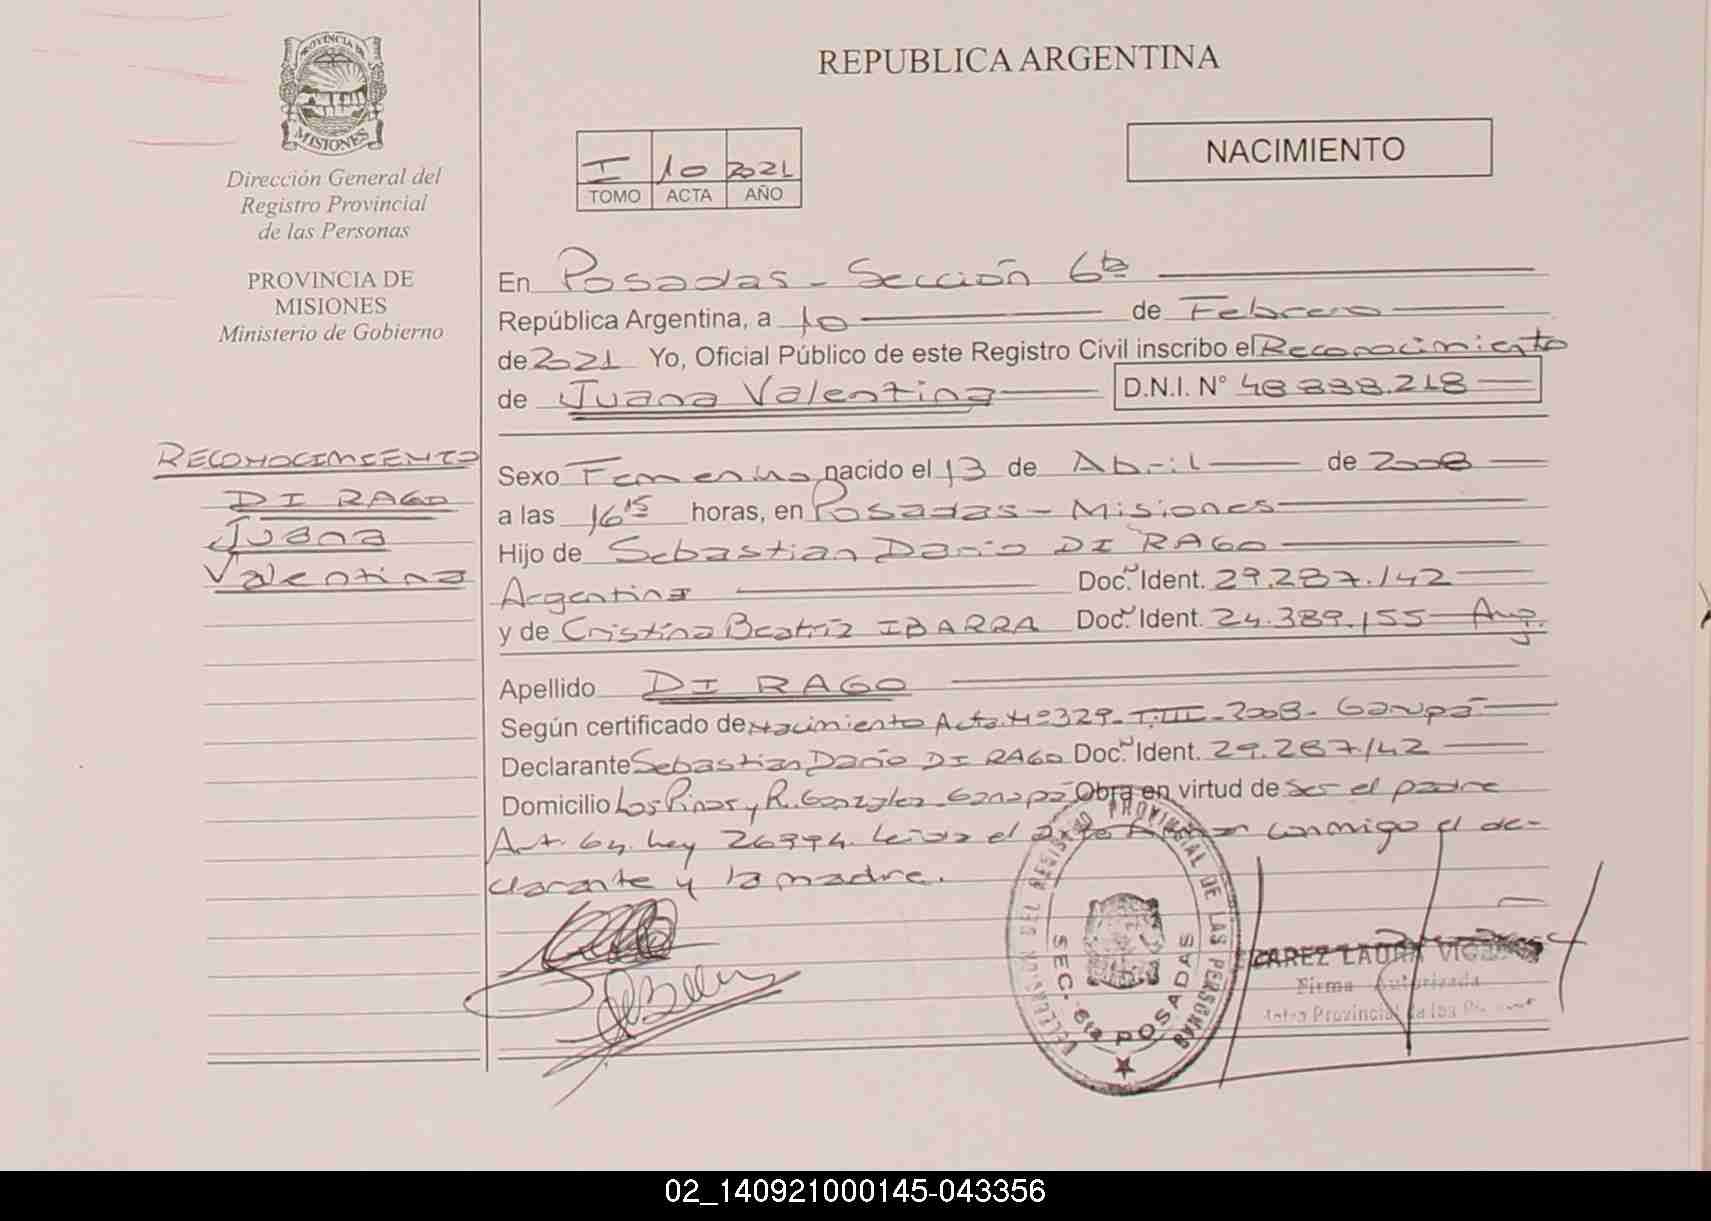 PROVINCIA DE
MISIONES
Dirección General del
Registro Provincial
de las Personas
PROVINCIA DE
MISIONES
Ministerio de Gobierno
RECONOCIMIENTO
DI RAGO
Juana
Valentina
REPUBLICA ARGENTINA
I 10 2021
TOMO ACTA AÑO
NACIMIENTO
En Posadas - Sección 6ta
República Argentina, a 10 de Febrero
de 2021 Yo, Oficial Público de este Registro Civil inscribo el Reconocimiento
de Juana Valentina D.N.I. N° 48 838.218
Sexo Femenino nacido el 13 de Abril de 2008
a las 16 15 horas, en Posadas - Misiones
Hijo de Sebastian Dario DI RAGO
Argentina Doc. Ident. 29.287.142
y de Cristina Beatriz IBARRA Doc. Ident. 24.389.155 Arg.
Apellido DI RAGO
Según certificado de Nacimiento Acta Nº 329 - T.III - 2008 - Garupá
Declarante Sebastian Dario DI RAGO Doc. Ident. 29.287.142
Domicilio Los Pinos y R. Gonzalez - Garupá Obra en virtud de ser el padre
Art. 64. Ley 26994. Leida el acta firman conmigo el de-
clarante y la madre.
DEL REGISTRO PROVINCIAL DE LAS PERSONAS
SEC. 6ta POSADAS
LAURA
Firma Autorizada
Provincial de las
02_140921000145-043356